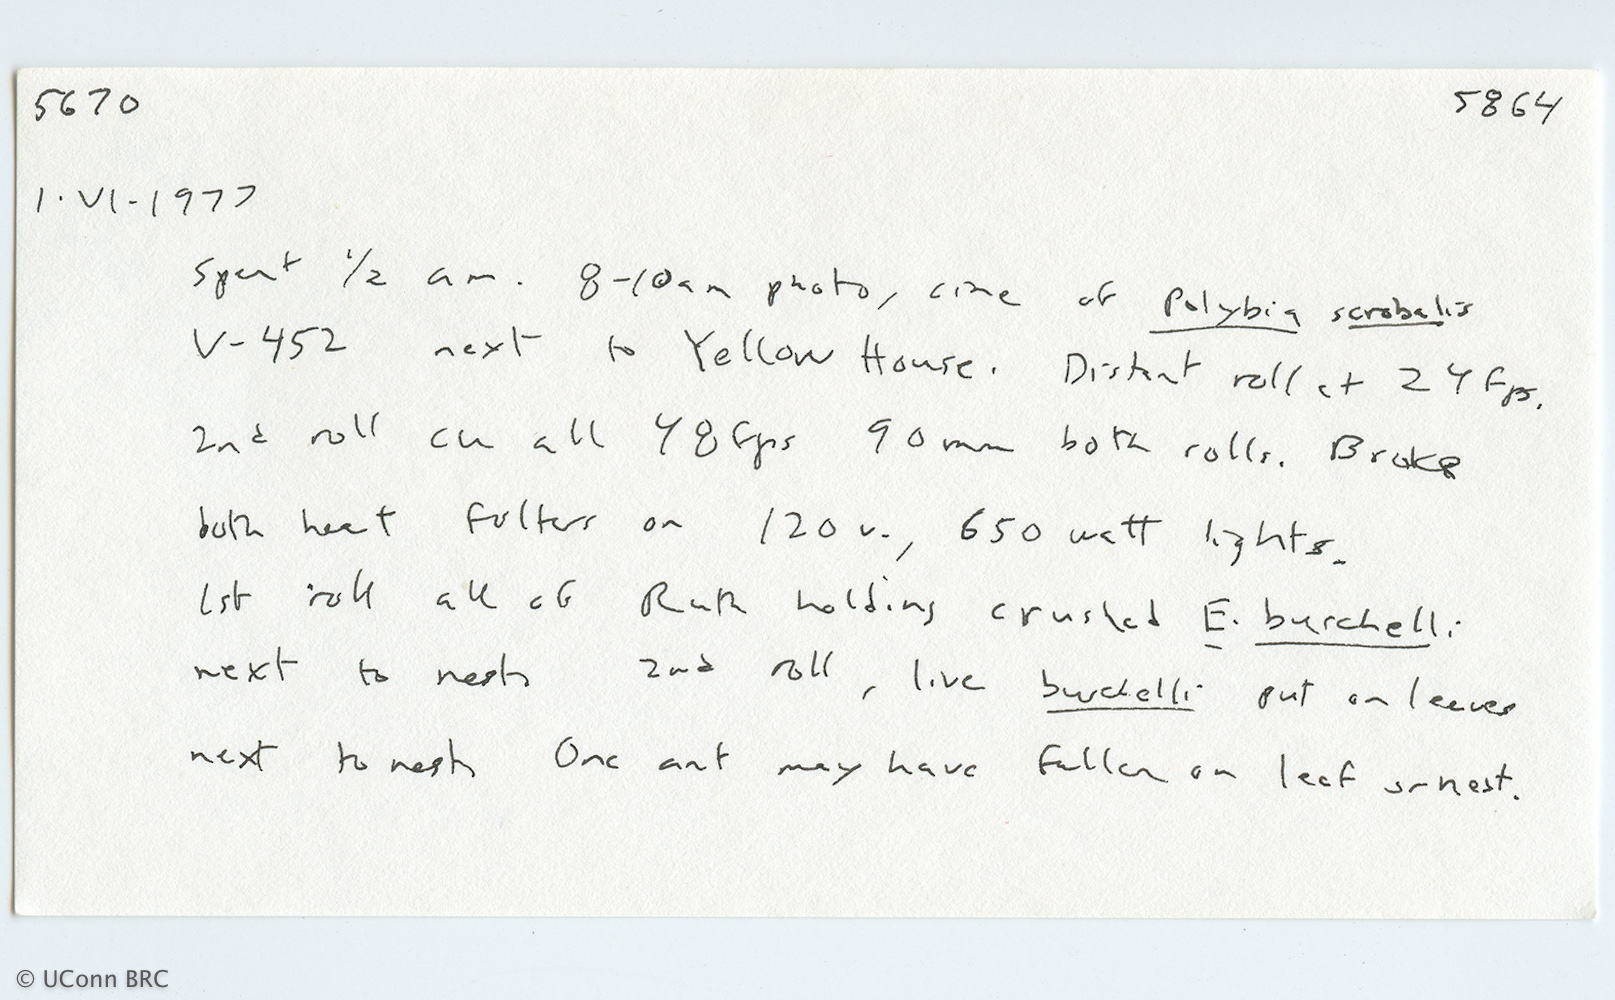 5670 5864
1·VI-1977
Spent 1/2 am. 8-10am photo, cine of Polybia scrobalis
V-452 next to Yellow House. Distant roll at 24 fps.
2nd roll cu all 48 fps 90 mm both rolls. Broke
both heat filters on 120 v., 650 watt lights.
1st roll all of Ruth holding crushed E. burchelli
next to nest 2nd roll, live burchelli put on leaves
next to nest One ant may have fallen on leaf or nest.
© UConn BRC